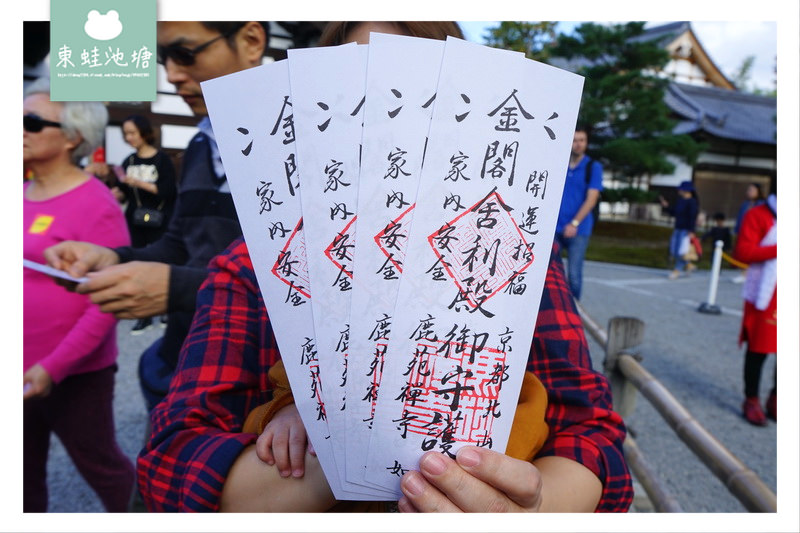 東蛙池塘
開運招福
金閣舍利殿御守護
家内安全
京都北山
鹿苑禅寺
家内安全
鹿苑禅寺
家内安全
鹿苑
家内安全
鹿苑